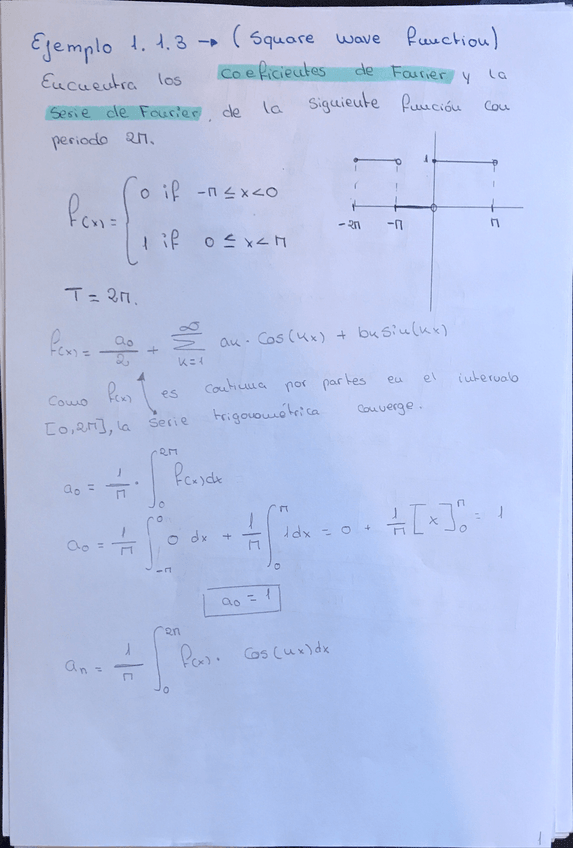 Ejemplo 1.1.3 → (Square wave function)
Encuentra los coeficientes de Fourier y la
Serie de Fourier, de la siguiente función con
periodo 2π.
f(x) = { 0 if -π ≤ x < 0
1 if 0 ≤ x < π
1
-2π -π π
T = 2π.
f(x) = a₀/2 + ∑_{k=1}^{∞} ak · cos(kx) + bk sin(kx)
como f(x) es continua por partes en el intervalo
[0,2π], la serie trigonométrica converge.
a₀ = 1/π · ∫₀^{2π} f(x)dx
a₀ = 1/π ∫_{-π}^{0} 0 dx + 1/π ∫₀^{π} 1dx = 0 + 1/π [x]₀^{π} = 1
a₀ = 1
an = 1/π ∫₀^{2π} f(x) · cos(nx)dx
1